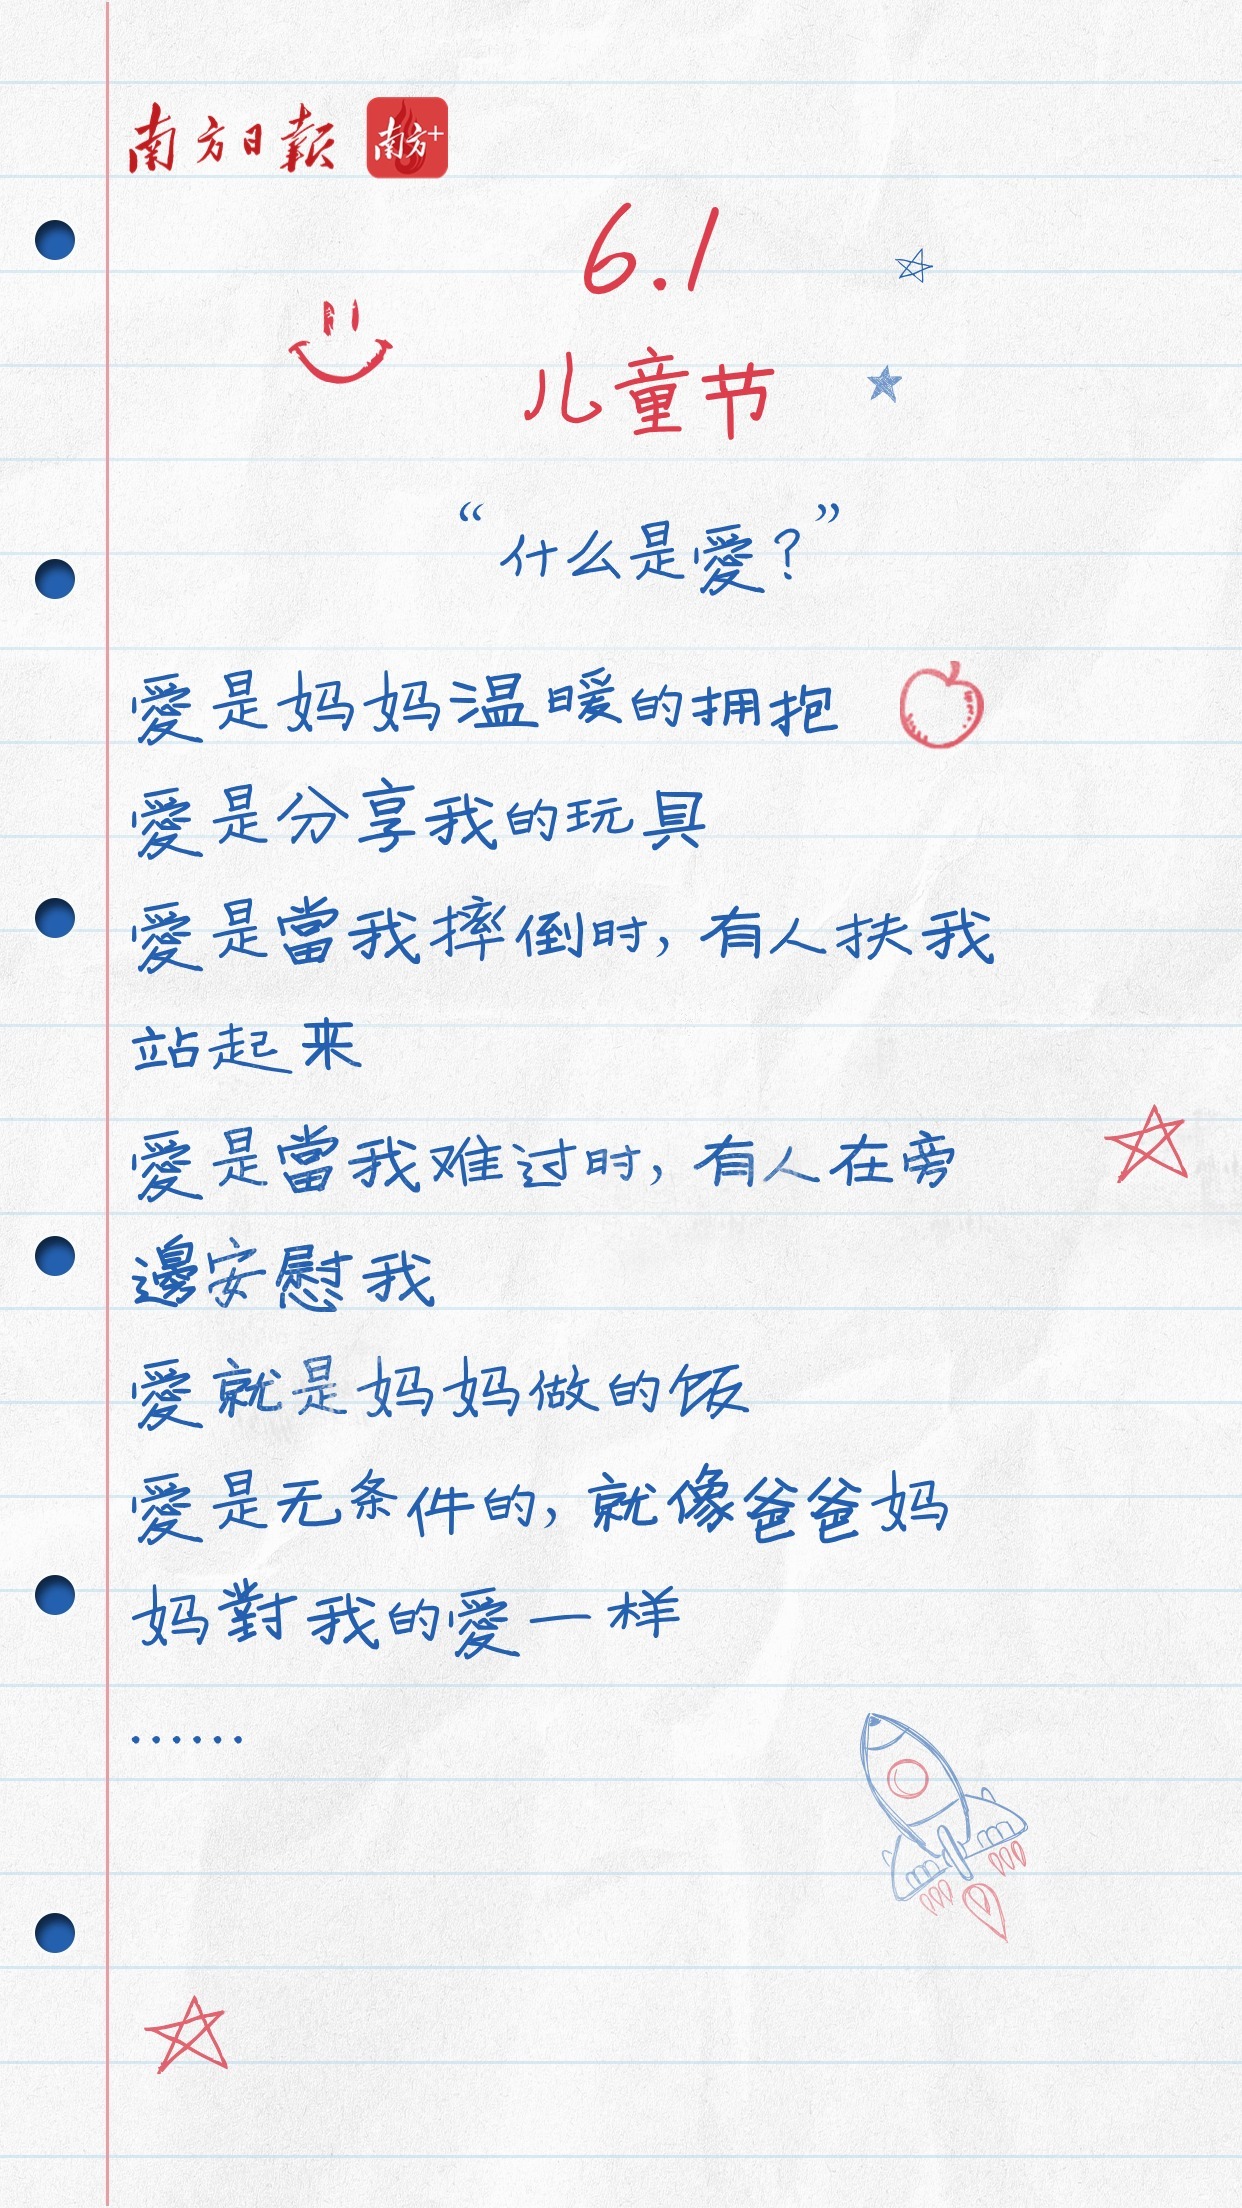 南方日报 南方+
6.1
儿童节
“什么是愛？”
愛是妈妈温暖的拥抱
愛是分享我的玩具
愛是當我摔倒时，有人扶我
站起来
愛是當我难过时，有人在旁
邊安慰我
愛就是妈妈做的饭
愛是无条件的，就像爸爸妈
妈對我的愛一样
……